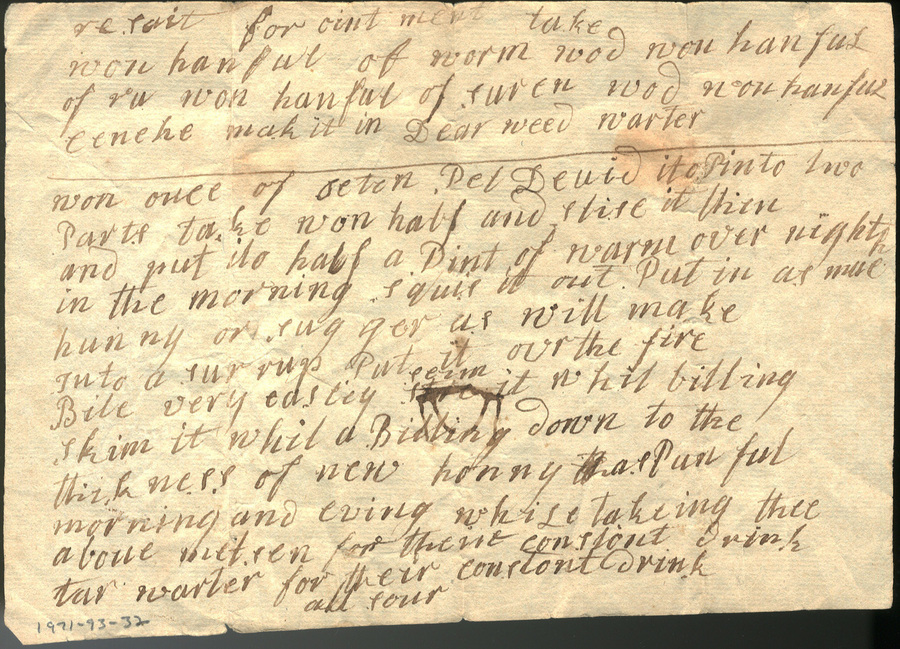 resait for oint ment take
won hanful of worm wod won hanful
of ru won hanful of suren wod won hanful
make it in Dear weed warter
won ouce of seten Pel Deuid ito Pinto two
Parts take won half and slise it thin
and put ito half a Pint of warm over night
in the morning squis it out Put in as much
hunny or sugger as will make
into a surrup Put it ovr the fire
Bile very easley it whil billing
skim it whil a Bieling down to the
thickness of new honny tas Pun ful
morning and eving whise takeing thee
aboue metsen for there constont drink
tar warter for their constont drink
all sour
1971-93-32